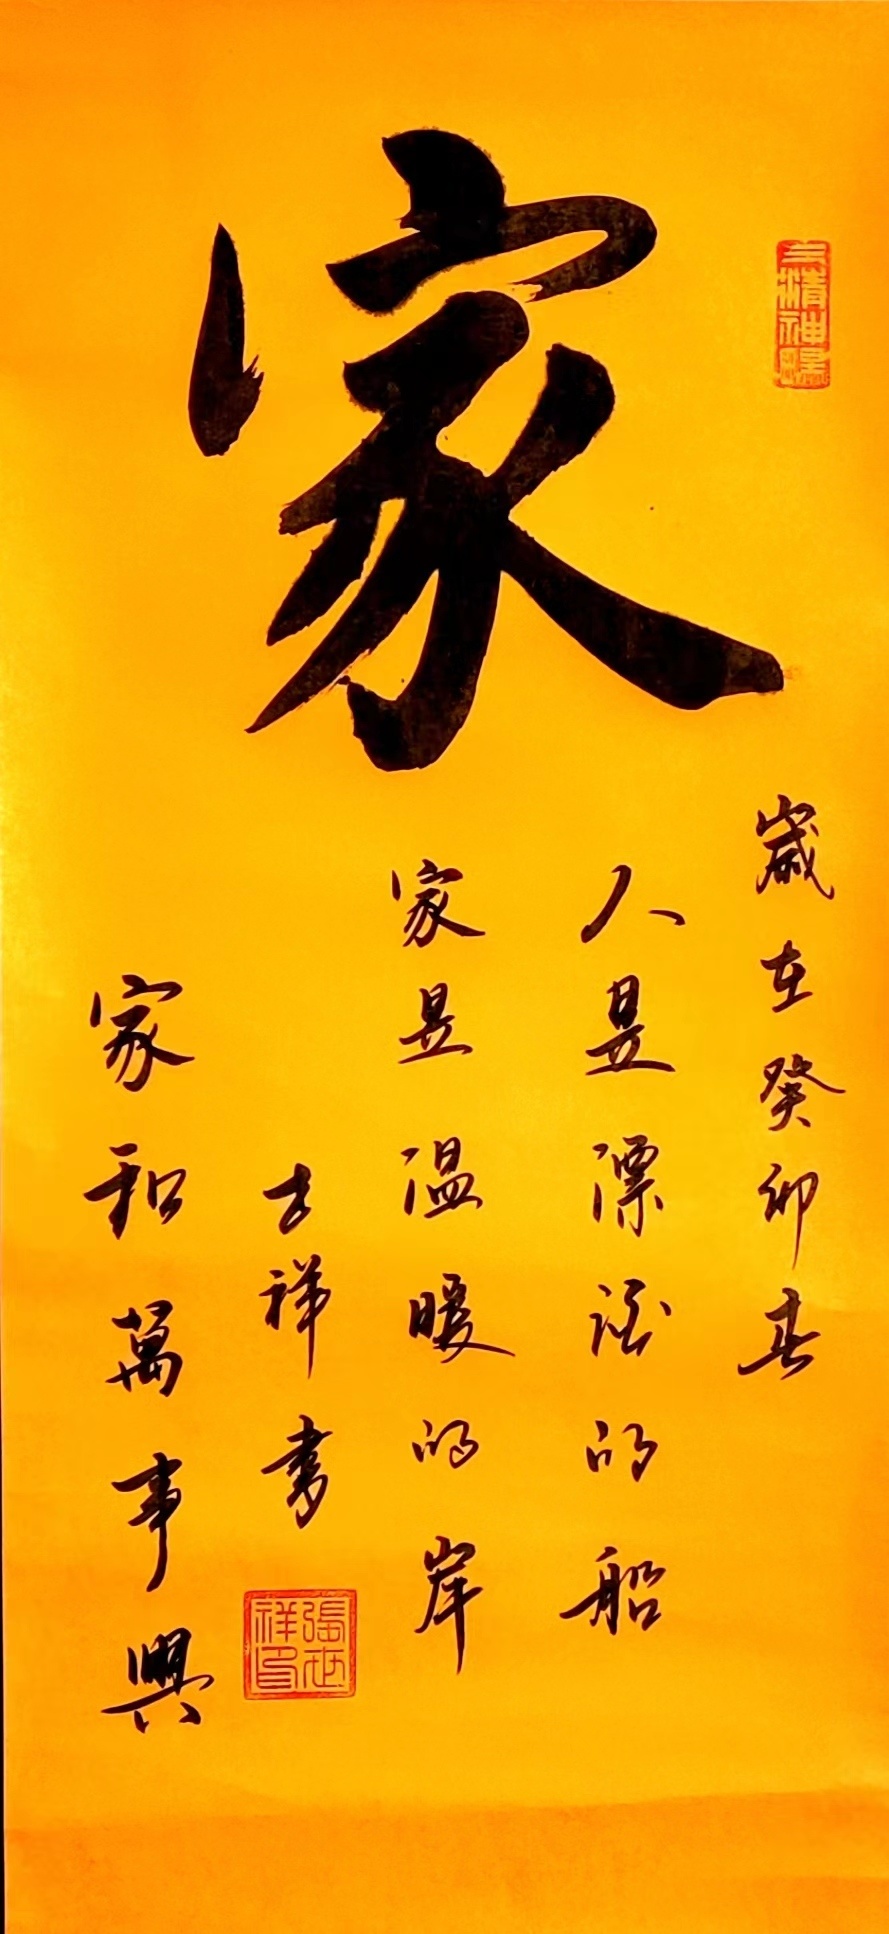 家
歲在癸卯春
人是漂泊的船
家是温暖的岸
吉祥書
家和萬事興
張世祥印